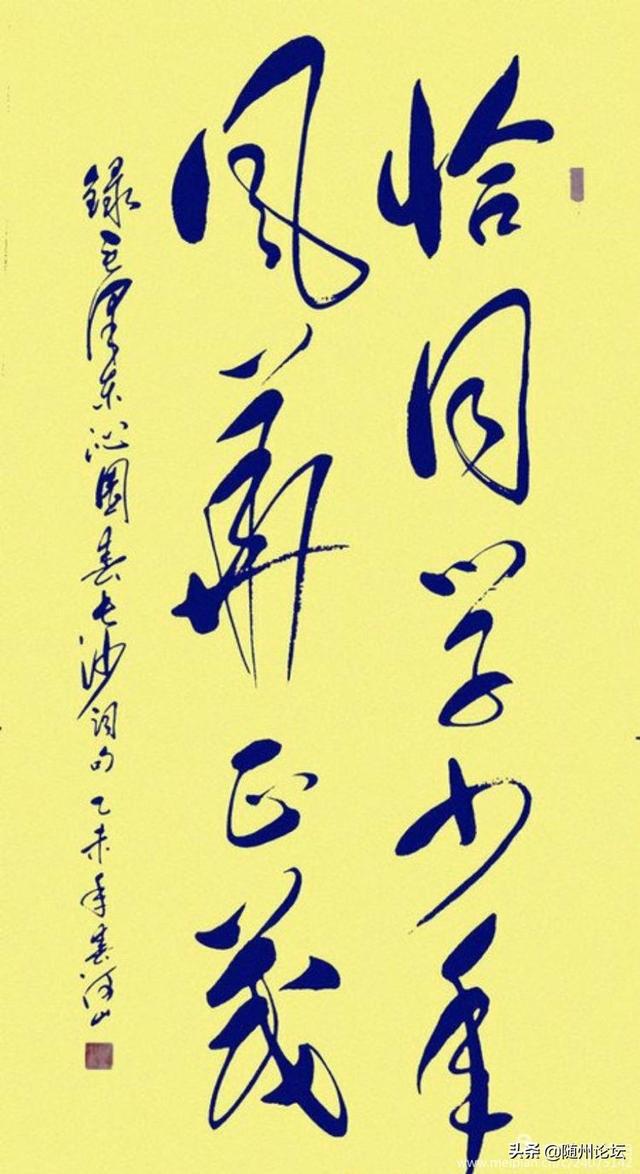 恰同学少年
风华正茂
录毛泽东沁园春长沙词句 乙未年春河山
头条 @随州论坛